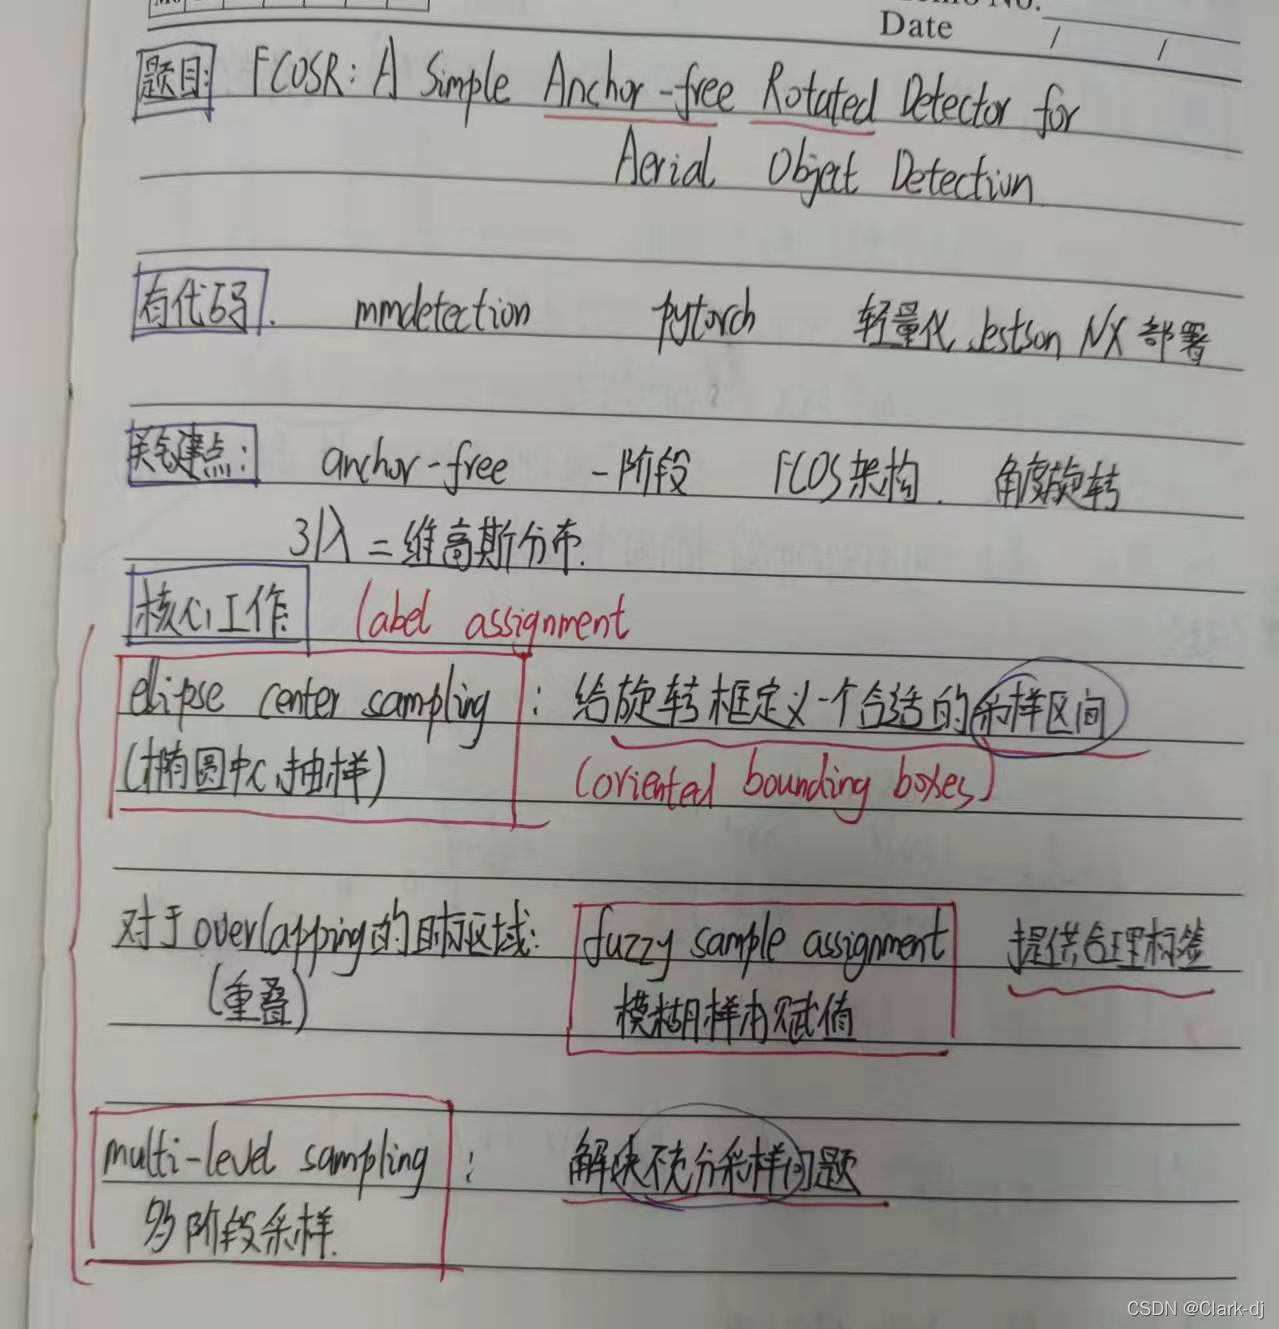 Date / /
题目: FCOSR: A Simple Anchor-free Rotated Detector for
Aerial Object Detection
有代码. mmdetection pytorch 轻量化 Jestson NX 部署
关键点: anchor-free 一阶段 FCOS架构. 角度旋转
引入二维高斯分布.
核心工作: label assignment
elipse center sampling : 给旋转框定义一个合适的采样区间
(椭圆中心抽样) (oriented bounding boxes)
对于overlapping的目标区域: fuzzy sample assignment 提供合理标签
(重叠) 模糊样本赋值
multi-level sampling : 解决不充分采样问题
多阶段采样.
CSDN @Clark-dj